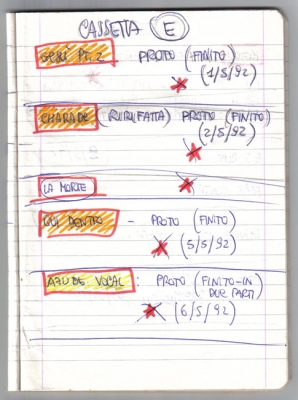 CASSETTA E
SEGNI PT. 2 PROTO (FINITO)
(1/5/92)
CHARADE (RUBUFATTA) PROTO (FINITO)
(2/5/92)
LA MORTE
QUI DENTRO - PROTO (FINITO)
(5/5/92)
VOCAL : PROTO (FINITO-IN
DUE PARTI)
(6/5/92)